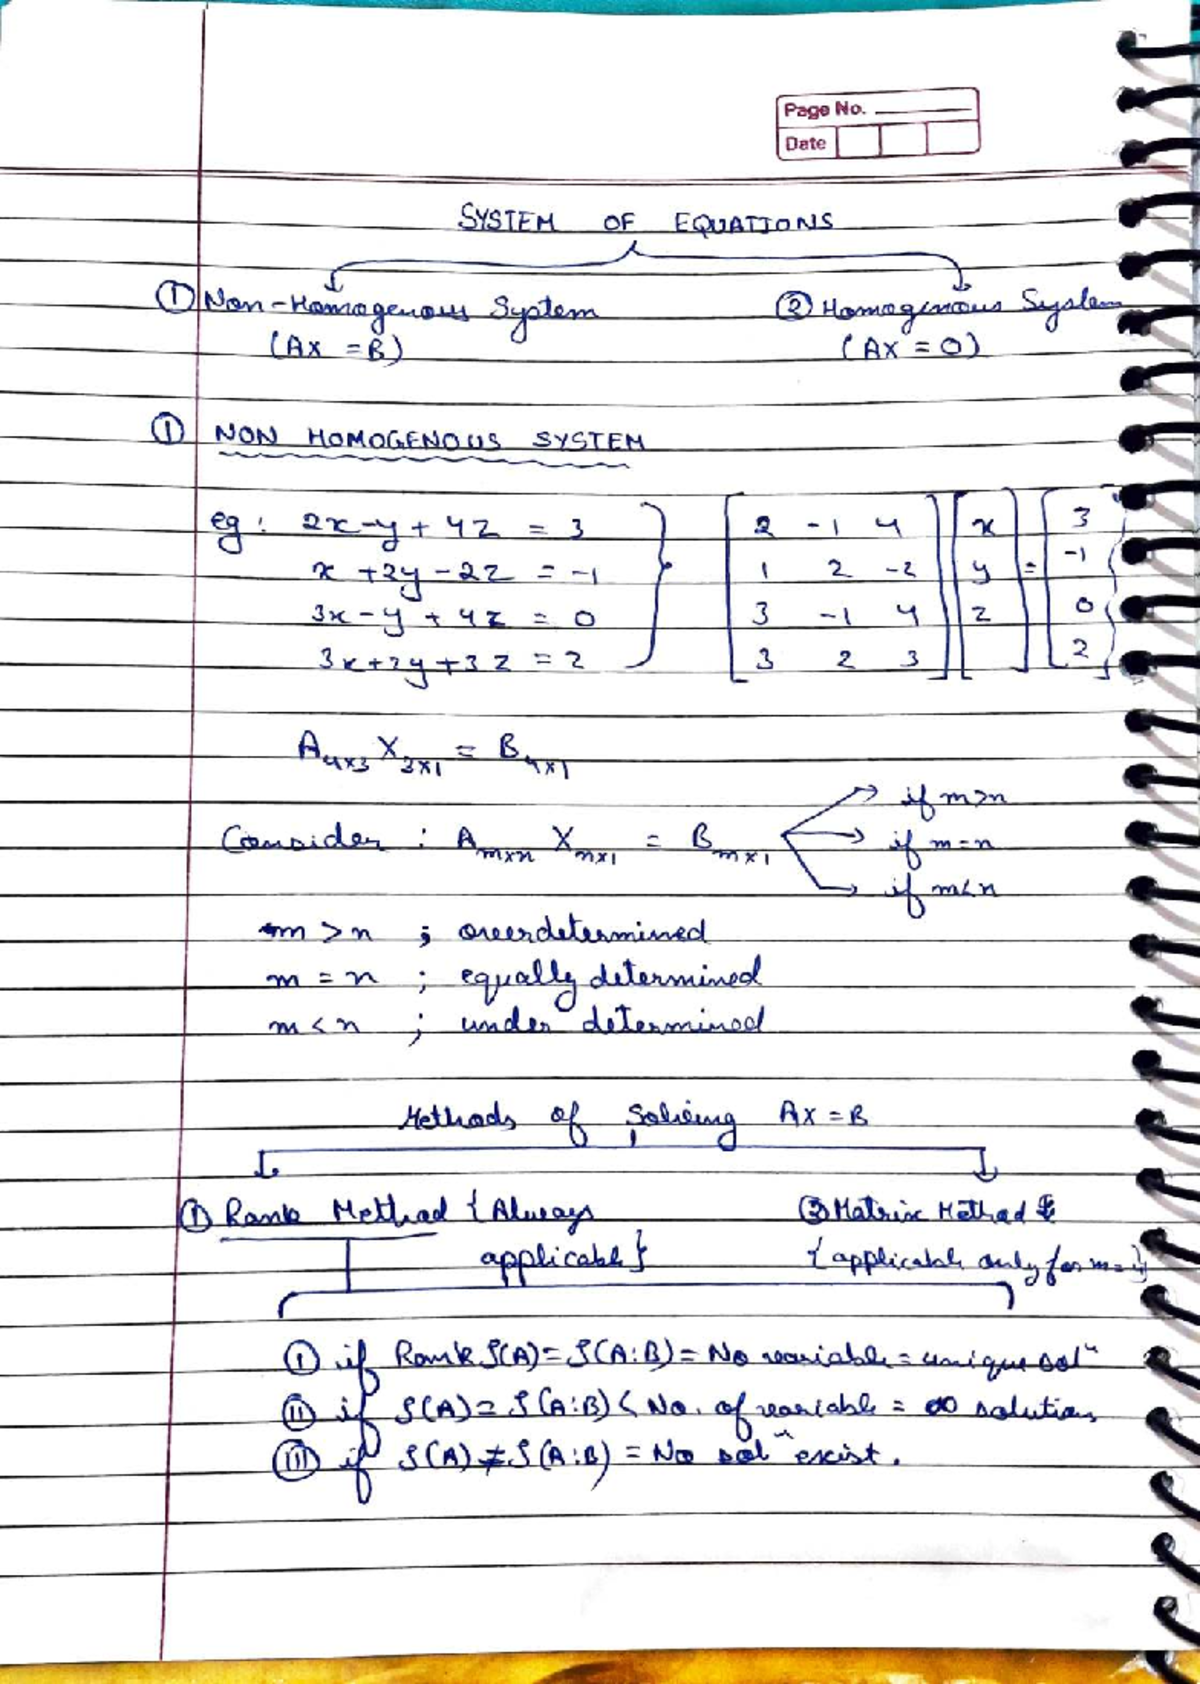 Page No.
Date
SYSTEM OF EQUATIONS
① Non-Homogenous System ② Homogenous System
(AX = B) (AX = 0)
① NON HOMOGENOUS SYSTEM
eg: 2x-y+4z = 3 [2 -1 4] [x] = [3]
x+2y-2z = -1 [1 2 -2] [y] [-1]
3x-y+4z = 0 [3 -1 4] [z] [0]
3x+2y+3z = 2 [3 2 3] [2]
A₄ₓ₃ X₃ₓ₁ = B₄ₓ₁
if m>n
Consider : Aₘₓₙ Xₙₓ₁ = Bₘₓ₁ if m=n
if m<n
m > n ; overdetermined
m = n ; equally determined
m < n ; under determined
Methods of Solving AX = B
① Rank Method {Always ② Matrix Method
applicable} {applicable only for m=n}
(I) if Rank ρ(A) = ρ(A:B) = No variable = unique solⁿ
(II) if ρ(A) = ρ(A:B) < No. of variable = ∞ solution
(III) if ρ(A) ≠ ρ(A:B) = No solⁿ exist.